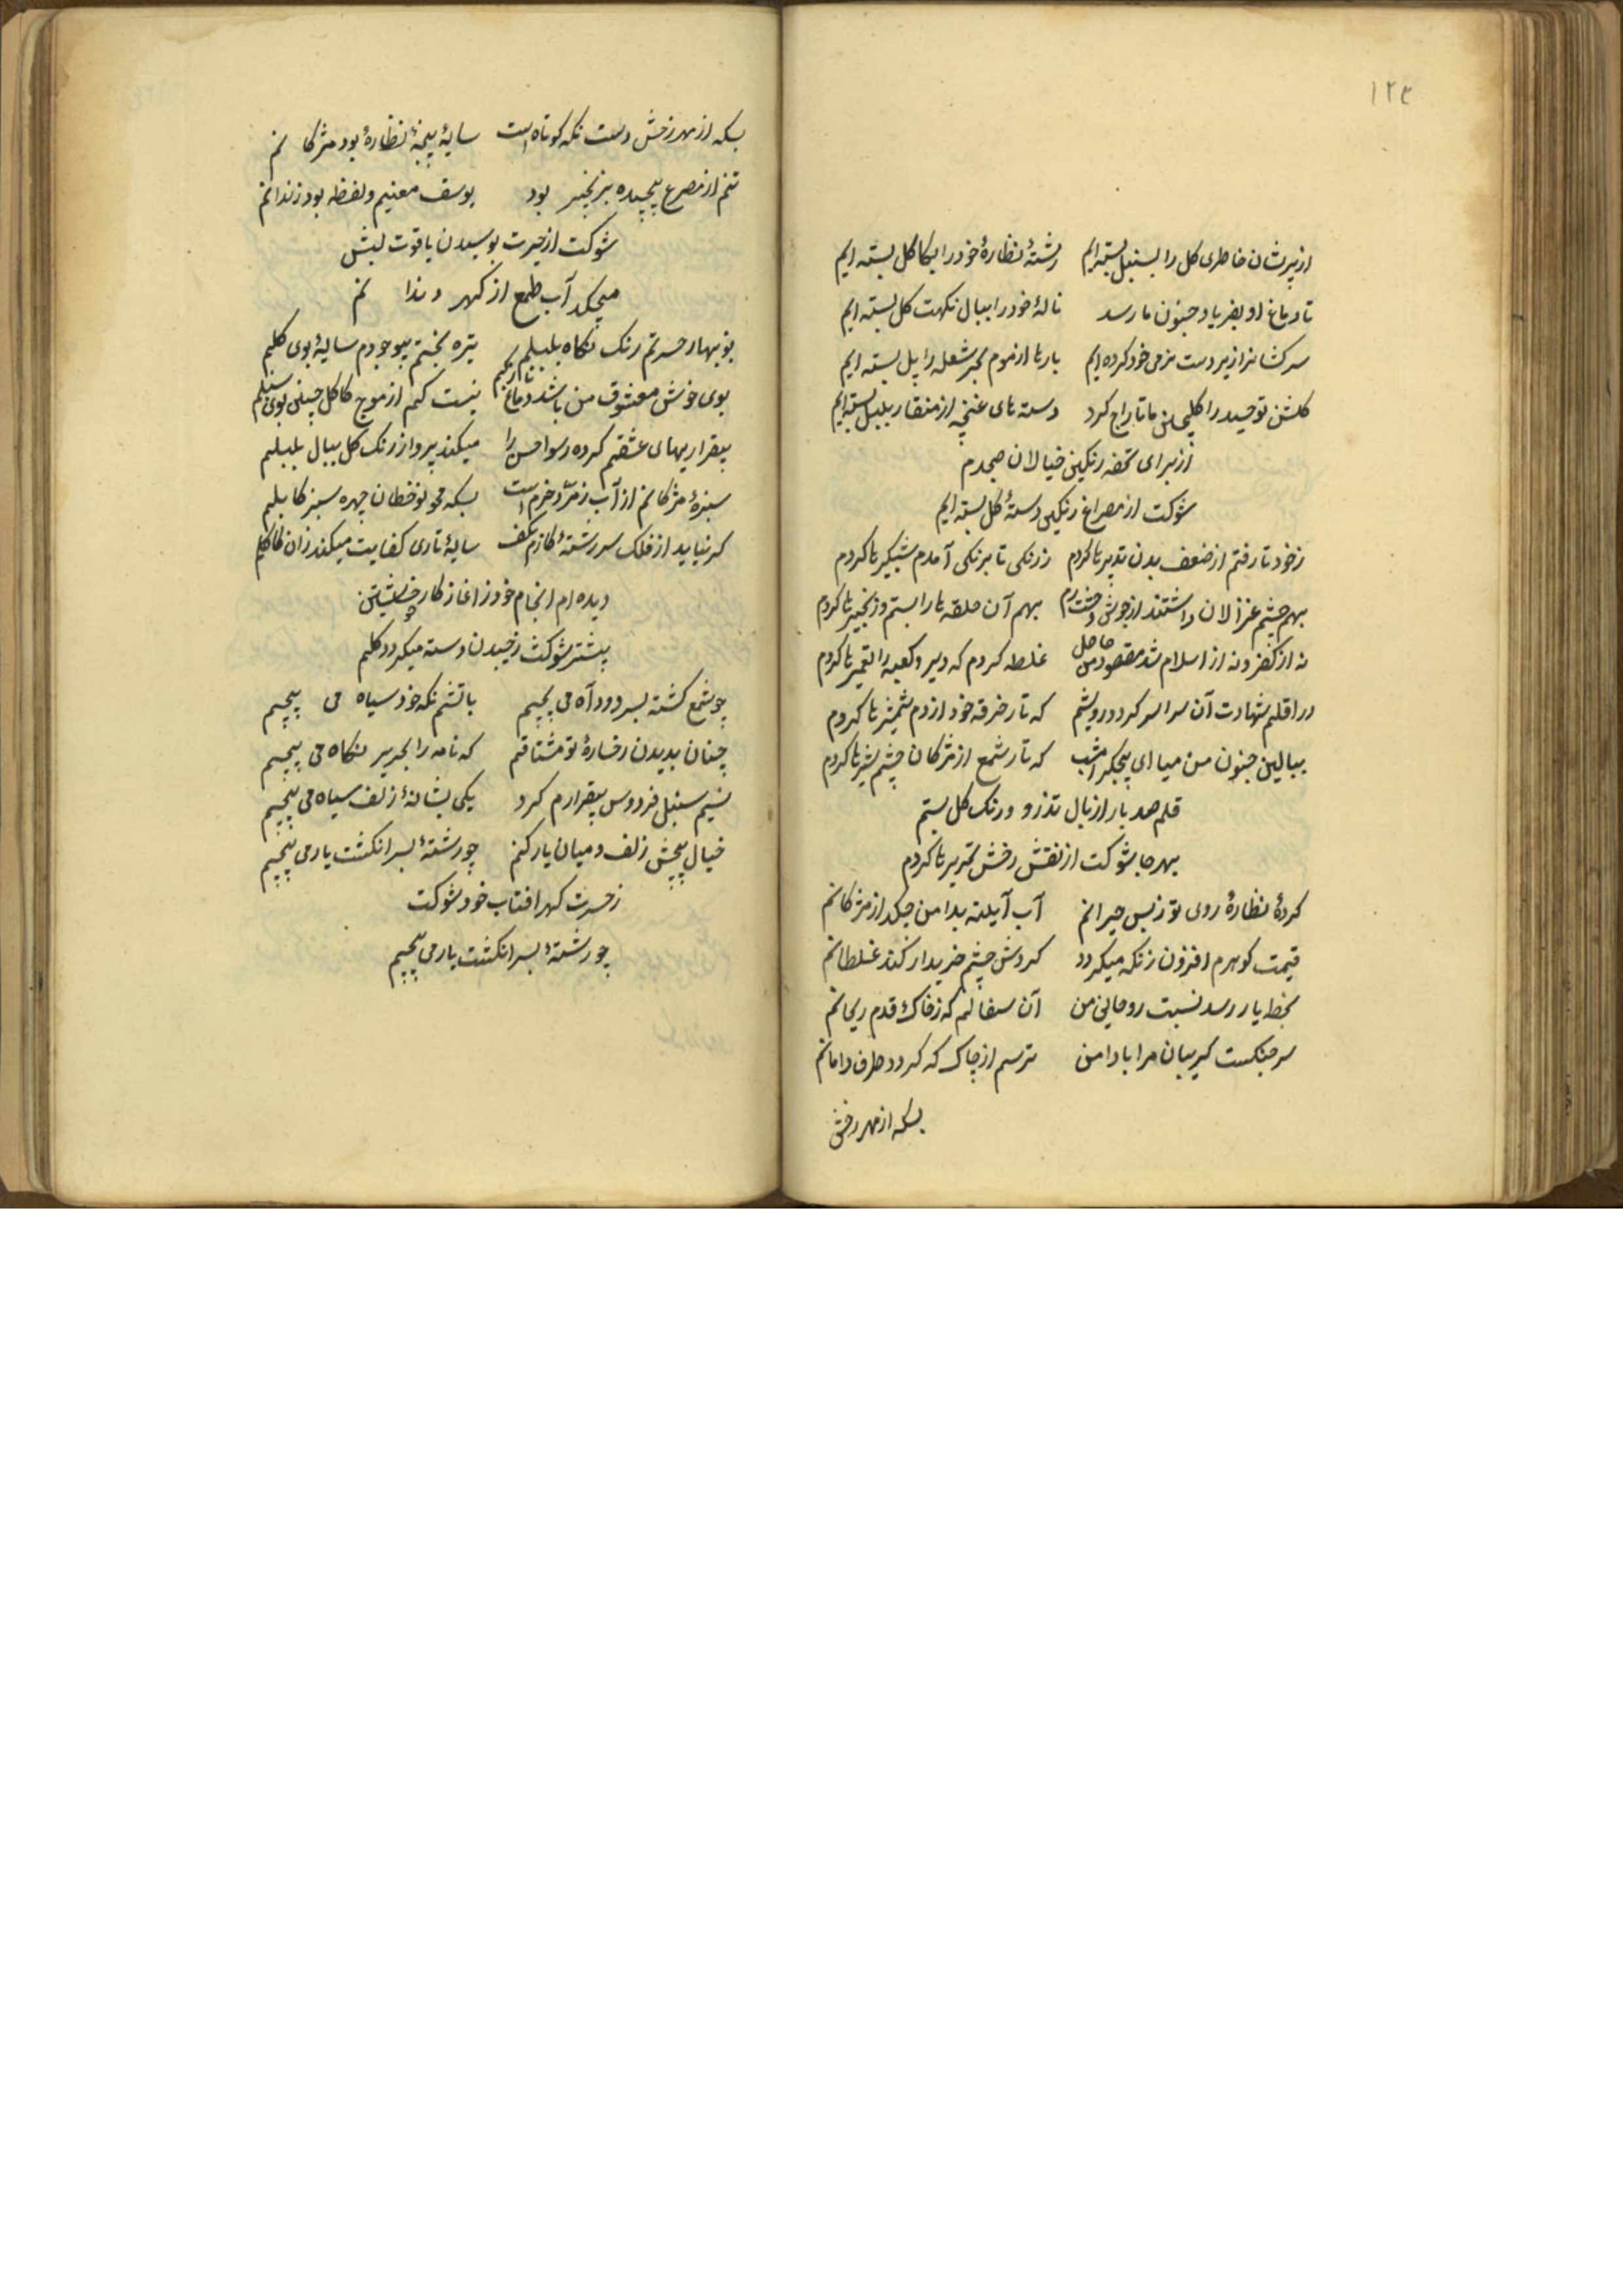 ۱۲۳
از پریشان خاطری کل را بسنبل بسته ایم رشتهٔ نظارهٔ خود را بکاکل بسته ایم
تا دماغ او بفریاد جنون ما رسد نالهٔ خود را ببال نکهت کل بسته ایم
سرکشانرا زیر دست نرمی خود کرده ایم بارها از موم بر شعله را پل بسته ایم
کلشن توحید را کلچین ما تاراج کرد دسته های غنچه از منقار بلبل بسته ایم
از برای تحفه رنکین خیالان صبحدم
شوکت از مصراع رنکین دستهٔ کل بسته ایم
ز خود تا رفتم از ضعف بدن تدبیرها کردم ز رنکی تا برنکی آمدم شبکیرها کردم
بهم چشم غزالان داشتند از جوش وحشت رم بهم آن حلقه ها را بستم و زنجیرها کردم
نه از کفر و نه از اسلام شد مقصود من حاصل غلط کردم که دیر و کعبه را تعمیرها کردم
در اقلیم شهادت آن سراسر کرد درویشم که تار خرقه خود از دم شمشیرها کردم
ببالین جنون من میا ای پنجکر امشب که تار شمع از مژکان چشم شیرها کردم
قلم صد بار از بال تذرو و رنک کل بستم
بهر جا شوکت از نقش رخش تحریرها کردم
کردهٔ نظارهٔ روی تو ز بس حیرانم آب آیینه بدامن چکد از مژکانم
قیمت کوهرم افزون ز نکه میکردد کردش چشم خریدار کند غلطانم
بخط یار رسد نسبت روحانی من آن سفالم که ز خاک قدم ریحانم
سر جنکست کریبان مرا با دامن ترسم از چاک که کردد طرف دامانم
بسکه از مهر رخش
بسکه از مهر رخش دست نکه کوتاه است سایهٔ پنجهٔ نظاره بود مژکانم
تنم از مصرع پیچیده بزنجیر بود یوسف معنیم و لفظ بود زندانم
شوکت از حیرت بوسیدن یاقوت لبش
میچکد آب طمع از کهر دندانم
نوبهار حسرتم رنک نکاه بلبلم تیره بختم بیوجودم سایهٔ بوی کلم
بوی خوش معشوق من باشد دماغ نازکیم نیست کم از موج کاکل چین بوی سنبلم
بیقراریهای عشقم کرده رسوا حسن را میکند پرواز رنک کل ببال بلبلم
سبزهٔ مژکانم از آب زمرد خرم است بسکه محو نوخطان چهره سبز کابلم
کر نیاید از فلک سر رشتهٔ کارم بکف سایهٔ تاری کفایت میکند زان کاکلم
دیده ام انجام خود ز اغاز کار خویشتن
پیشتر شوکت ز چیدن دسته میکردد کلم
چو شمع کشته بسر دود آه می پیچم باتشم نکه خود سیاه می پیچم
چنان بدیدن رخسارهٔ تو مشتاقم که نامه را بحریر نکاه می پیچم
نسیم سنبل فردوس بیقرارم کرد یکی بشانهٔ زلف سیاه می پیچم
خیال پیچش زلف و میان یار کنم چو رشتهٔ بسر انکشت یار می پیچم
ز حسرت کهر افتاب خود شوکت
چو رشتهٔ بسر انکشت یار می پیچم